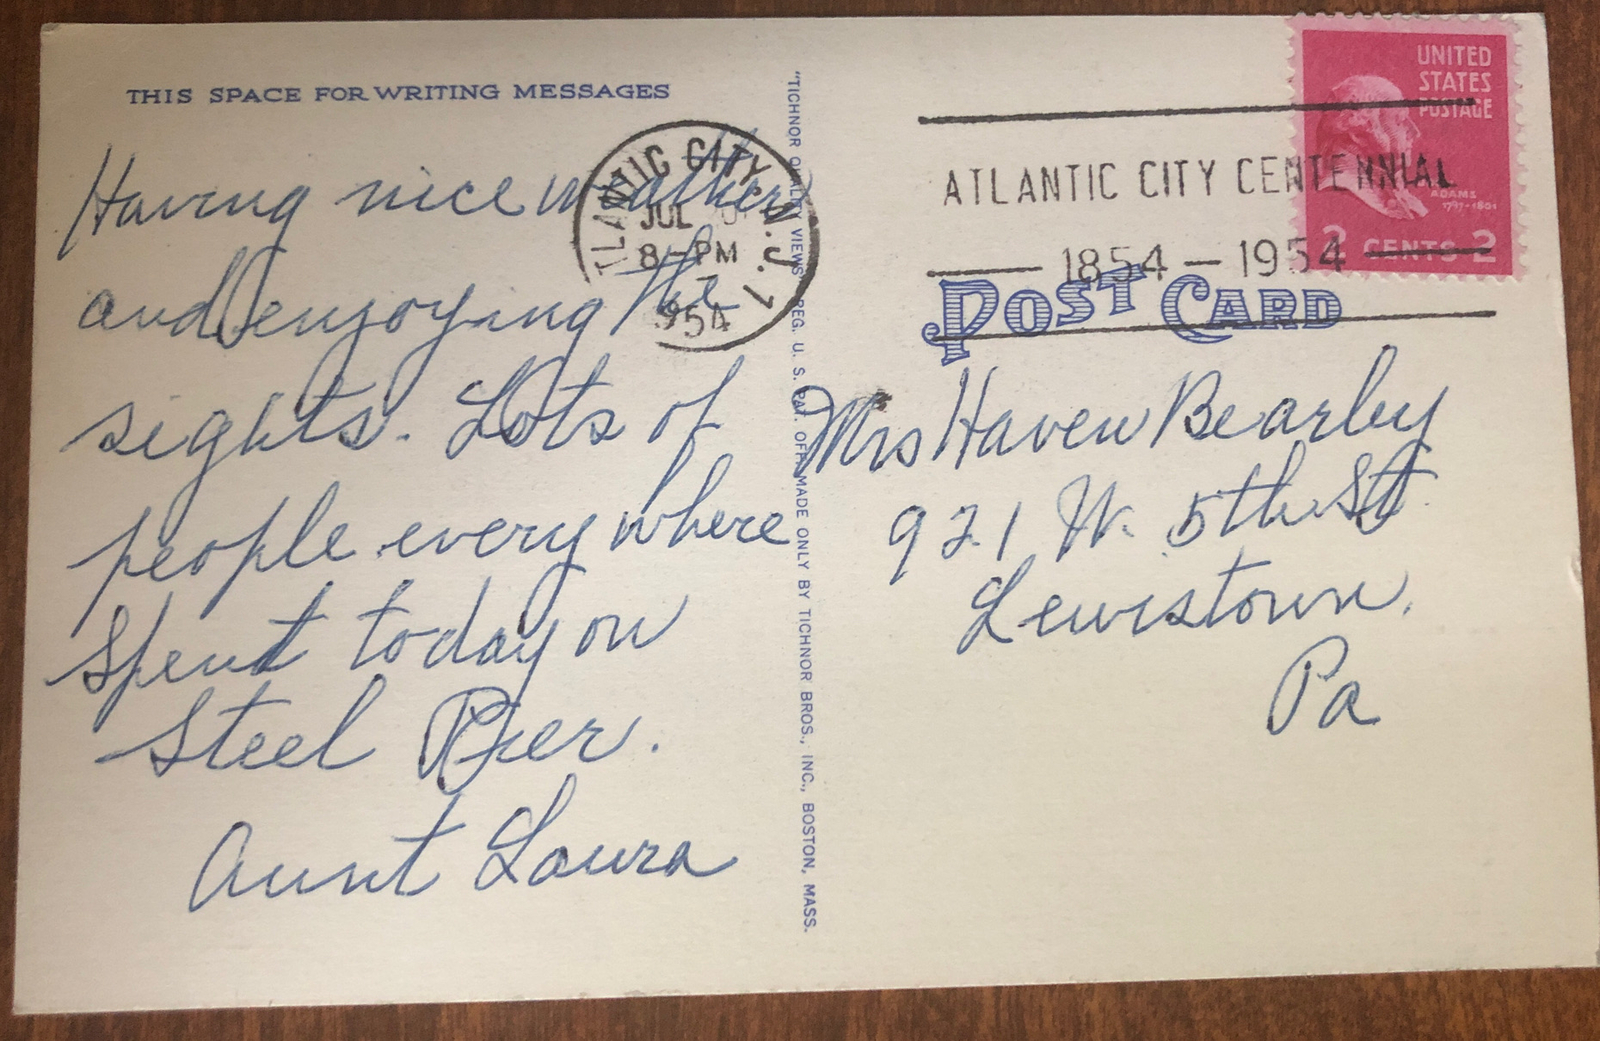 THIS SPACE FOR WRITING MESSAGES
Having nice weather
and enjoying the
sights. Lots of
people every where
Spent today on
Steel Pier.
Aunt Laura
ATLANTIC CITY, N.J. 1
JUL
8 – PM
1954
"TICHNOR QUALITY VIEWS" REG. U. S. PAT. OFF. MADE ONLY BY TICHNOR BROS., INC., BOSTON, MASS.
UNITED
STATES
POSTAGE
ADAMS
1797-1801
2 CENTS 2
ATLANTIC CITY CENTENNIAL
1854 – 1954
POST CARD
Mrs Haven Bearley
921 W. 5th St
Lewistown.
Pa